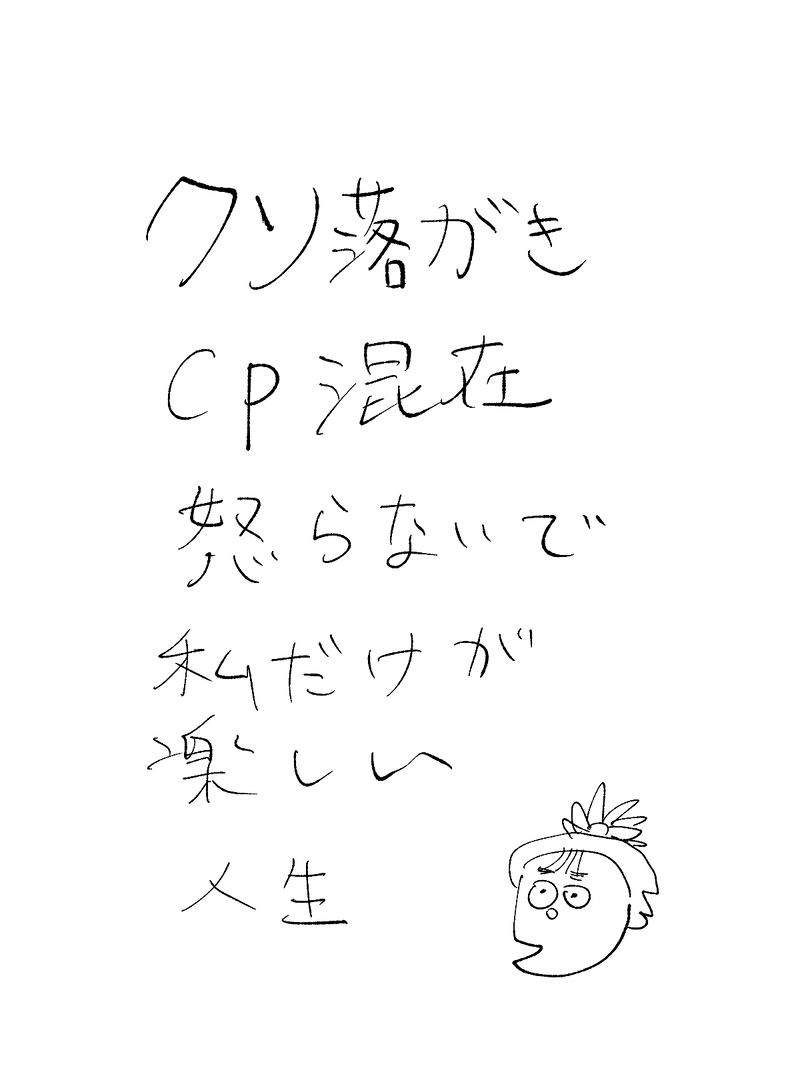 クソ落がき
CP混在
怒らないで
私だけが
楽しい
人生